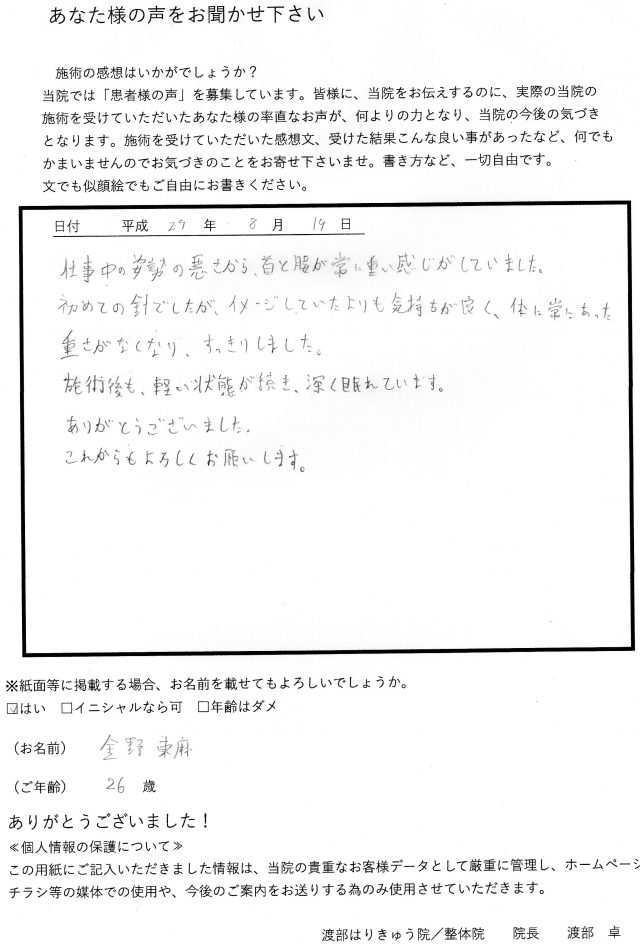 あなた様の声をお聞かせ下さい
施術の感想はいかがでしょうか？
当院では「患者様の声」を募集しています。皆様に、当院をお伝えするのに、実際の当院の
施術を受けていただいたあなた様の率直なお声が、何よりの力となり、当院の今後の気づき
となります。施術を受けていただいた感想文、受けた結果こんな良い事があったなど、何でも
かまいませんのでお気づきのことをお寄せ下さいませ。書き方など、一切自由です。
文でも似顔絵でもご自由にお書きください。
日付 平成 29 年 8 月 19 日
仕事中の姿勢の悪さから、首と腰が常に重い感じがしていました。
初めての針でしたが、イメージしていたよりも気持ちが良く、体に常にあった
重さがなくなり、すっきりしました。
施術後も、軽い状態が続き、深く眠れています。
ありがとうございました。
これからもよろしくお願いします。
※紙面等に掲載する場合、お名前を載せてもよろしいでしょうか。
☑はい □イニシャルなら可 □年齢はダメ
（お名前） 金野 東麻
（ご年齢） 26 歳
ありがとうございました！
≪個人情報の保護について≫
この用紙にご記入いただきました情報は、当院の貴重なお客様データとして厳重に管理し、ホームページ
チラシ等の媒体での使用や、今後のご案内をお送りする為のみ使用させていただきます。
渡部はりきゅう院／整体院 院長 渡部 卓